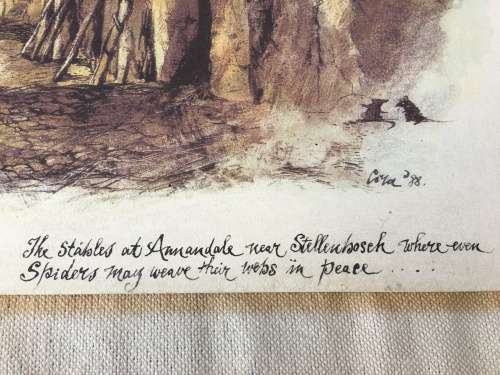 Cora '88.
The Stables at Annandale near Stellenbosch where even
Spiders may weave their webs in peace . . . . .